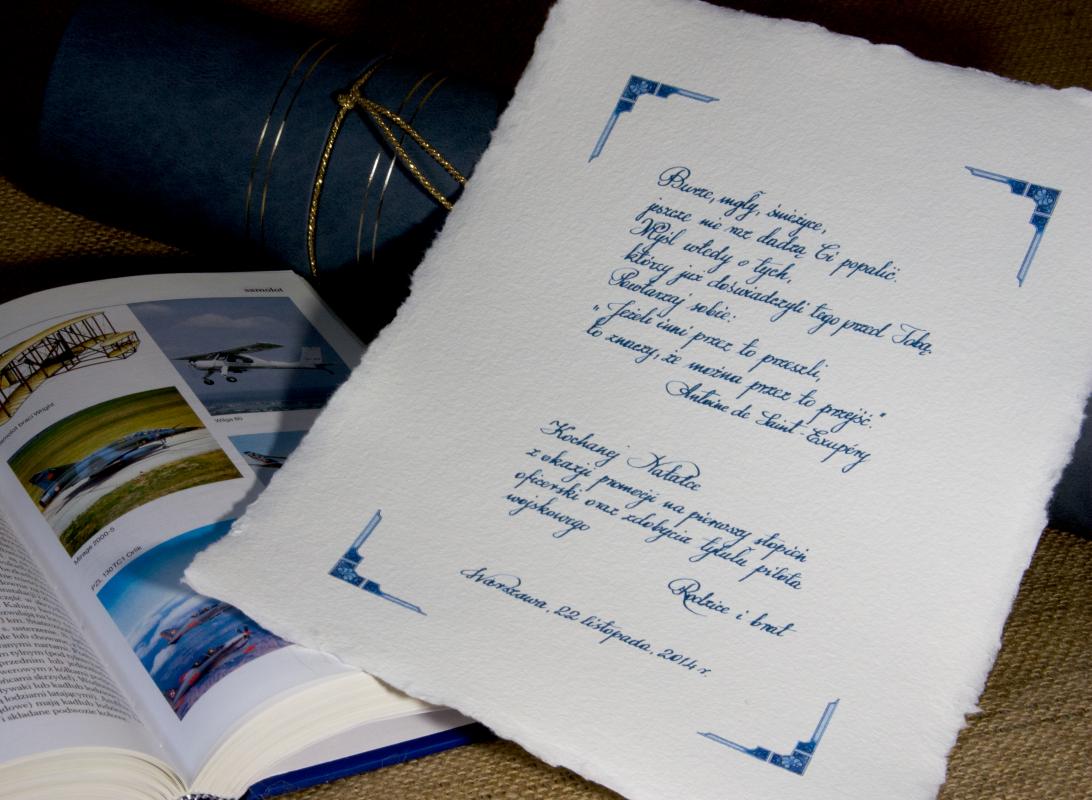 Burze, mgły, śnieżyce,
jeszcze nie raz dadzą Ci popalić.
Myśl wtedy o tych,
którzy już doświadczyli tego przed Tobą.
Powtarzaj sobie:
"Jeżeli inni przez to przeszli,
to znaczy, że można przez to przejść."
Antoine de Saint Exupéry
Kochanej Natalce
z okazji promocji na pierwszy stopień
oficerski oraz zdobycia tytułu pilota
wojskowego
Rodzice i brat
Warszawa, 22 listopada, 2014 r.
samolot
samolot braci Wright
Wilga 80
Mirage 2000-5
PZL 130TC1 Orlik